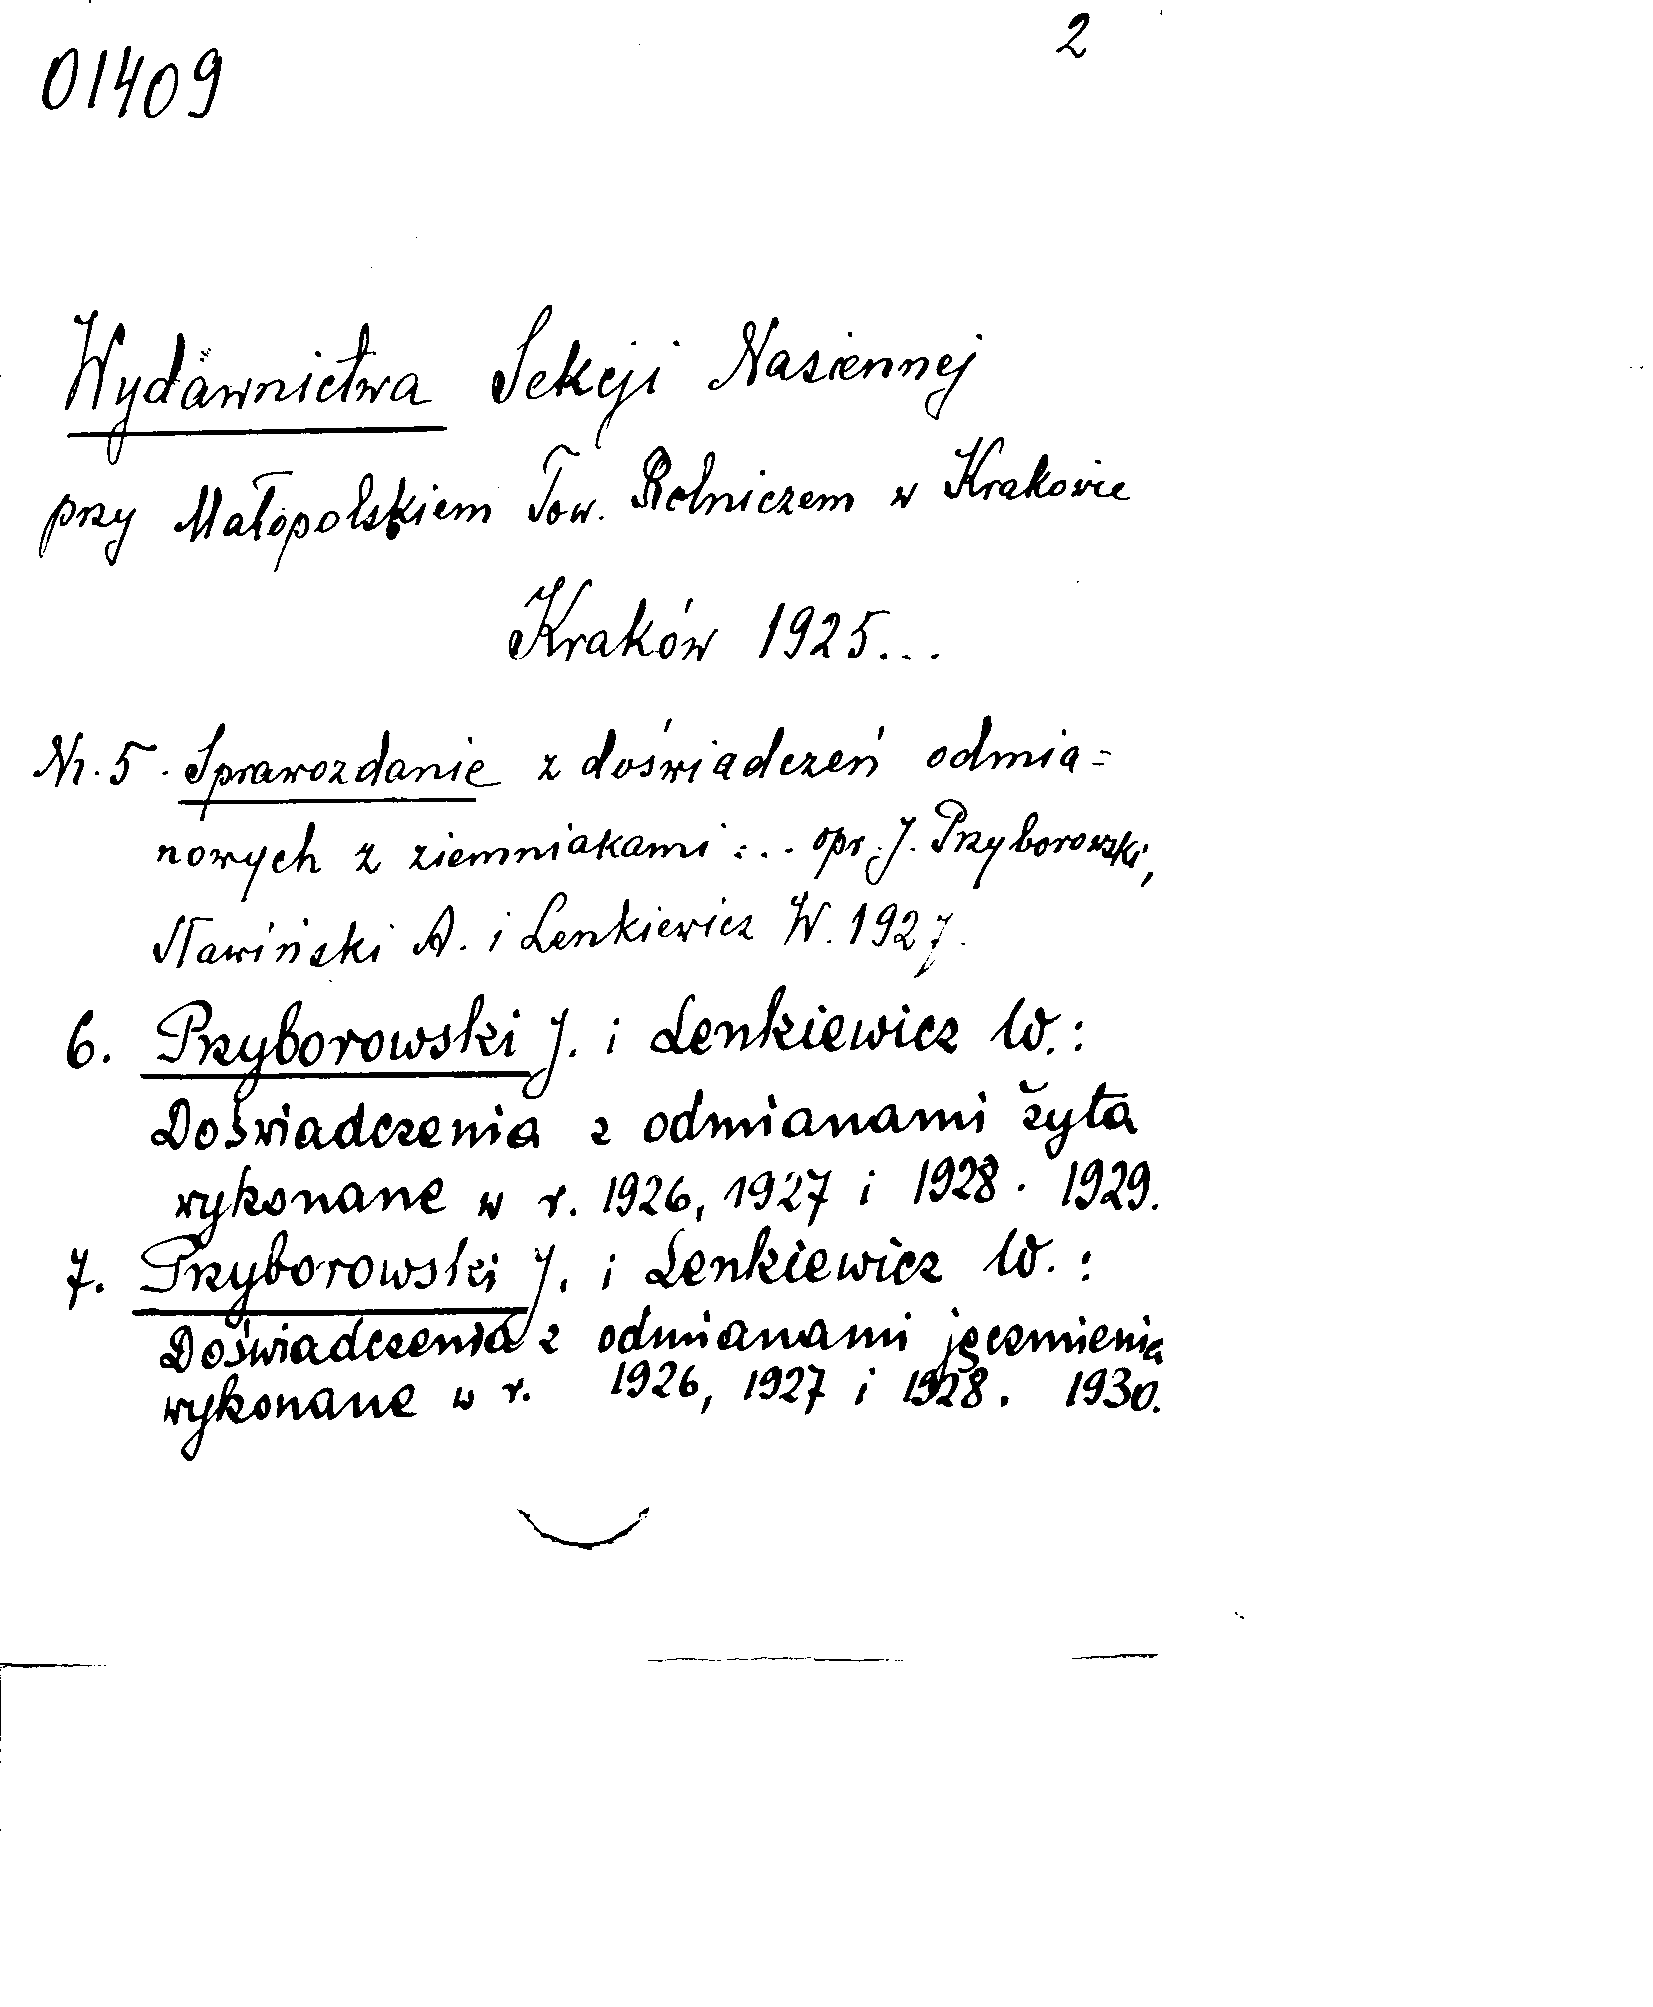 2
01409
Wydawnictwa Sekcji Nasiennej
przy Małopolskiem Tow. Rolniczem w Krakowie
Kraków 1925...
Nr. 5. Sprawozdanie z doświadczeń odmia=
nowych z ziemniakami... opr. J. Przyborowski,
Sławiński A. i Lenkiewicz W. 1927.
6. Przyborowski J. i Lenkiewicz W.:
Doświadczenia z odmianami żyta
wykonane w r. 1926, 1927 i 1928. 1929.
7. Przyborowski J. i Lenkiewicz W.:
Doświadczenia z odmianami jęczmienia
wykonane w r. 1926, 1927 i 1928. 1930.